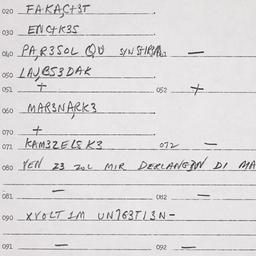 020 FAKA,C+3T
030 ENC+K3S
040 PA,R3SOL QU —
050 LAJ,@S3DAK
051 + 052 +
060 MAR3NARK3
070 +
071 KAM3ZELS K3 072 —
080 YEN 23 ZOL MIR DERLANGEN DI MA
081 — 082 —
090 XVOLT IM UN7G3TI3N-
091 — 092 —